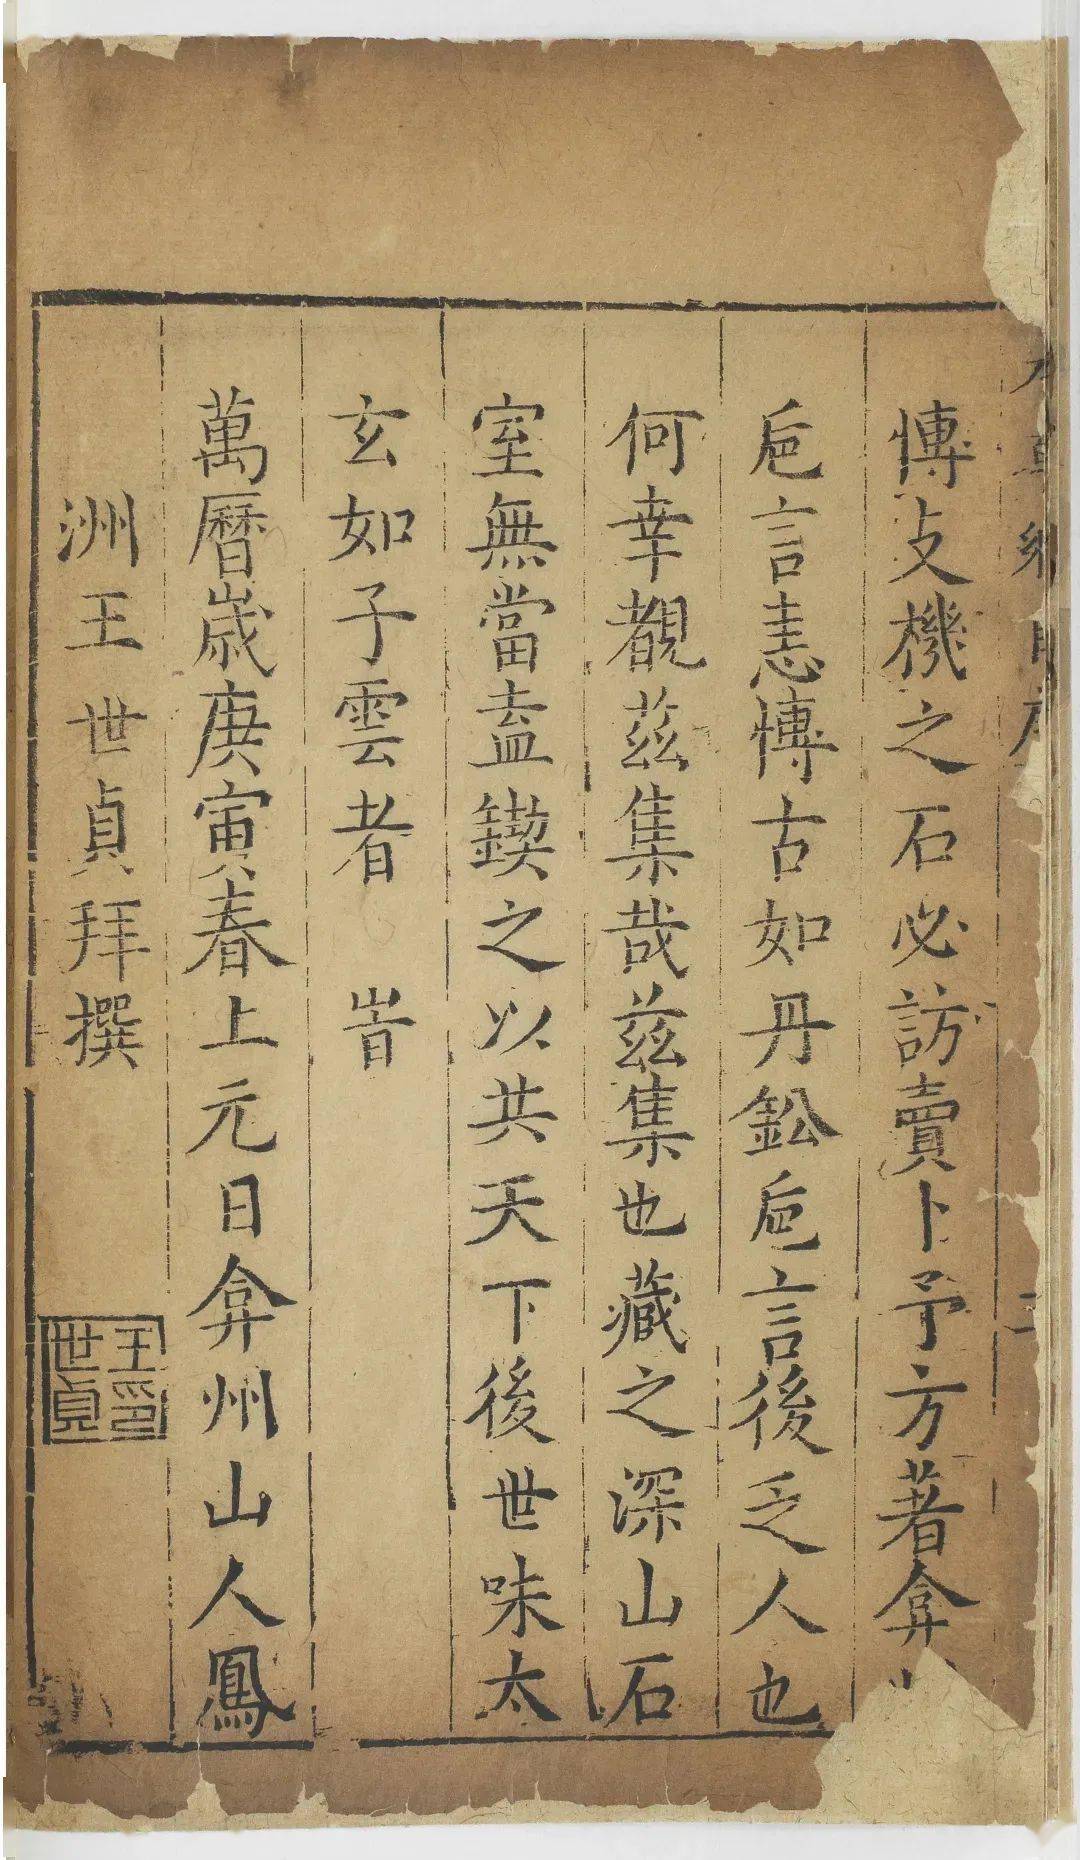 博支機之石必訪賣卜予方著弇
巵言恚博古如丹鉛巵言後乏人也
何幸覩茲集哉茲集也藏之深山石
室無當盍鍥之以共天下後世味太
玄如子雲者 旹
萬曆歲庚寅春上元日弇州山人鳳
洲王世貞拜撰
王世貞印